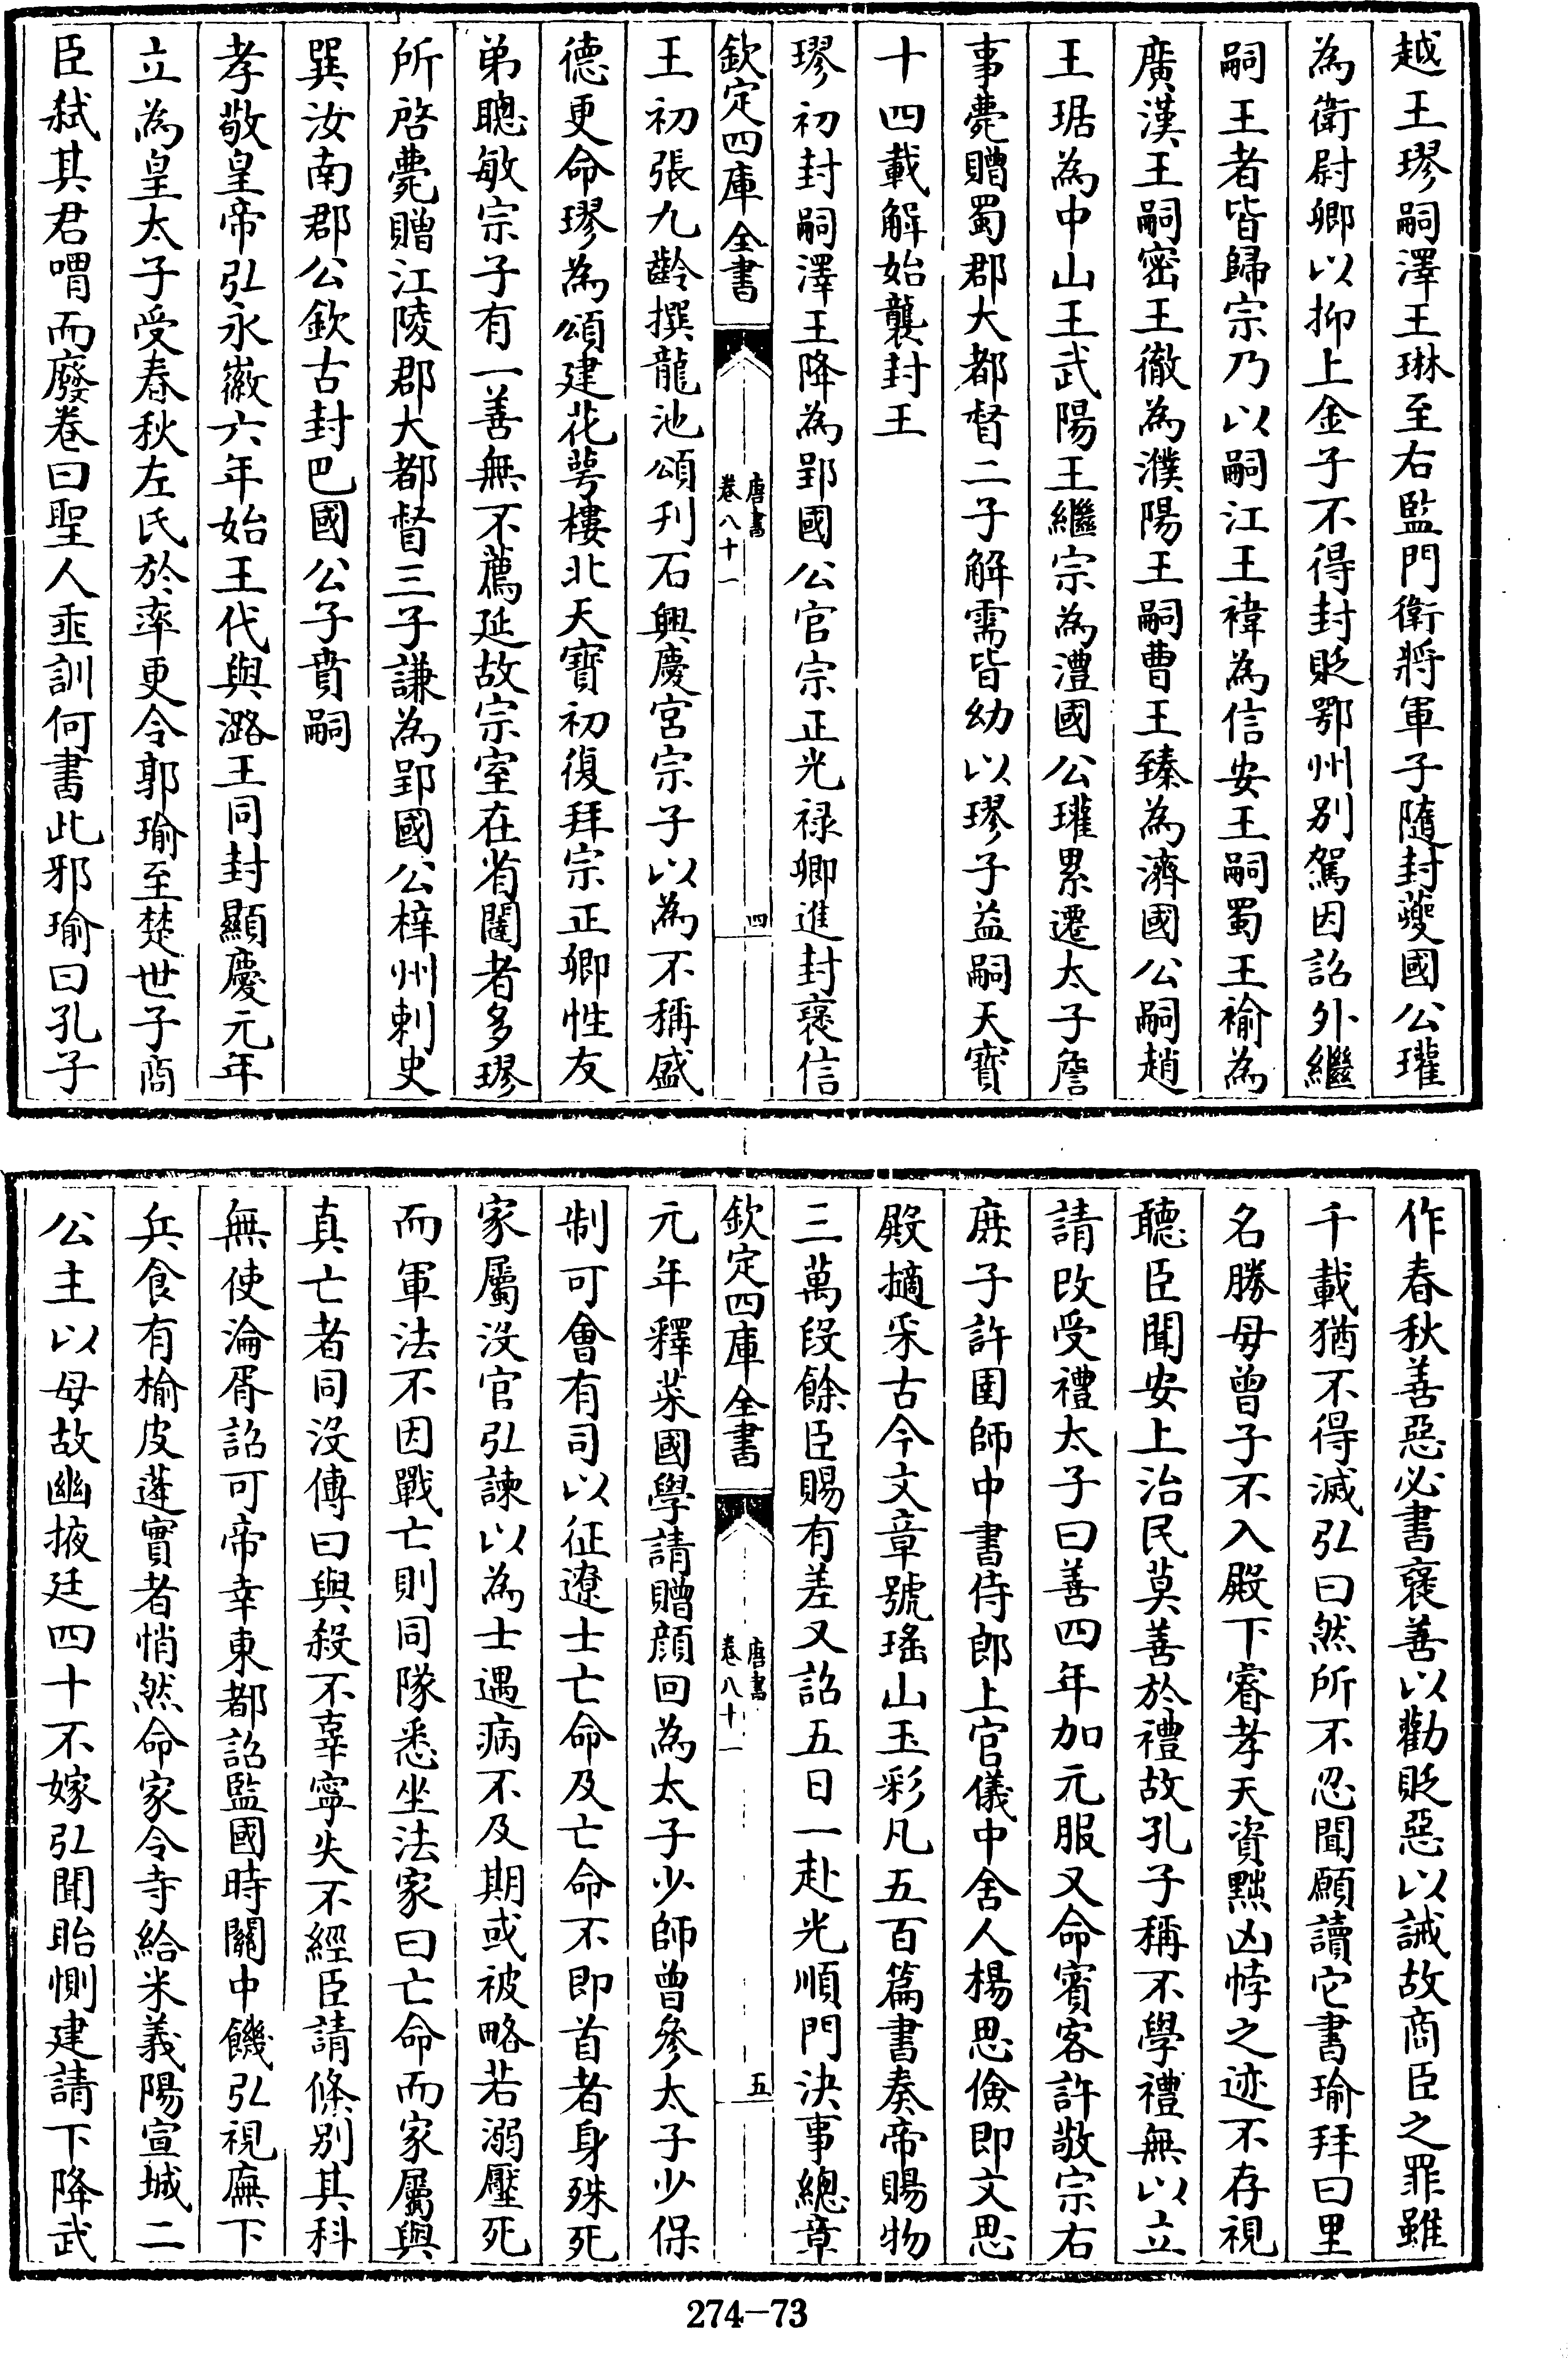 越王璆嗣澤王琳至右監門衛將軍子隨封夔國公瓘
為衛尉卿以抑上金子不得封貶鄂州别駕因詔外繼
嗣王者皆歸宗乃以嗣江王禕為信安王嗣蜀王褕為
廣漢王嗣密王徹為濮陽王嗣曹王臻為濟國公嗣趙
王琚為中山王武陽王繼宗為澧國公瓘累遷太子詹
事薨贈蜀郡大都督二子解需皆幼以璆子益嗣天寶
十四載解始襲封王
璆初封嗣澤王降為郢國公官宗正光禄卿進封褒信
欽定四庫全書
唐書
卷八十一
四
王初張九齡撰龍池頌刋石興慶宮宗子以為不稱盛
德更命璆為頌建花萼樓北天寶初復拜宗正卿性友
弟聰敏宗子有一善無不薦延故宗室在省闥者多璆
所啓薨贈江陵郡大都督三子謙為郢國公梓州刺史
巽汝南郡公欽古封巴國公子賁嗣
孝敬皇帝弘永徽六年始王代與潞王同封顯慶元年
立為皇太子受春秋左氏於率更令郭瑜至楚世子商
臣弑其君喟而廢卷曰聖人垂訓何書此邪瑜曰孔子
作春秋善惡必書褒善以勸貶惡以誡故商臣之罪雖
千載猶不得滅弘曰然所不忍聞願讀它書瑜拜曰里
名勝母曾子不入殿下睿孝天資黜凶悖之迹不存視
聽臣聞安上治民莫善於禮故孔子稱不學禮無以立
請改受禮太子曰善四年加元服又命賓客許敬宗右
庶子許圉師中書侍郎上官儀中舍人楊思儉即文思
殿摘采古今文章號瑤山玉彩凡五百篇書奏帝賜物
三萬段餘臣賜有差又詔五日一赴光順門決事總章
欽定四庫全書
唐書
卷八十一
五
元年釋菜國學請贈顔回為太子少師曾參太子少保
制可會有司以征遼士亡命及亡命不即首者身殊死
家屬没官弘諫以為士遇病不及期或被略若溺壓死
而軍法不因戰亡則同隊悉坐法家曰亡命而家屬與
真亡者同没傳曰與殺不辜寧失不經臣請條别其科
無使淪胥詔可帝幸東都詔監國時關中饑弘視廡下
兵食有榆皮蓬實者悄然命家令寺給米義陽宣城二
公主以母故幽掖廷四十不嫁弘聞眙惻建請下降武
274-73